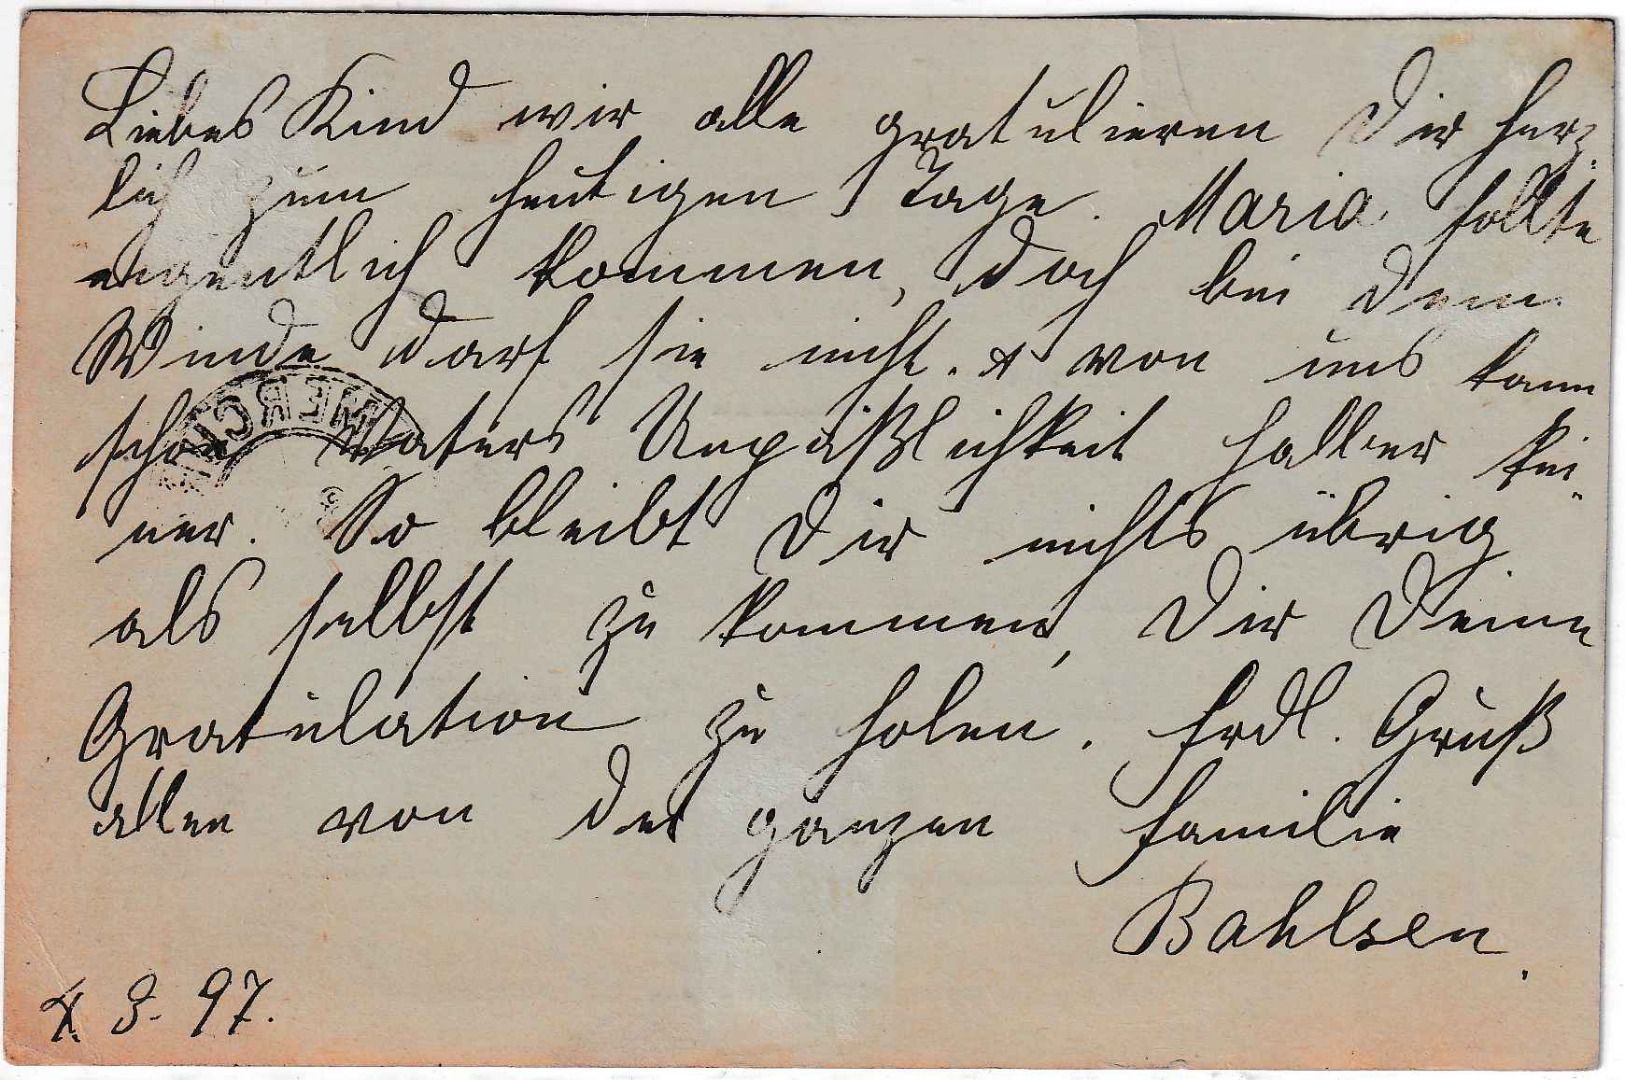 Liebes Kind wir alle gratulieren Dir herz-
lich zum heutigen Tage. Maria sollte
eigentlich kommen, doch bei dem
Winde darf sie nicht. & von uns kann
schon Vaters Unpäßlichkeit halber kei-
ner. So bleibt Dir nichts übrig
als selbst zu kommen, Dir Deine
Gratulation zu holen. Frdl. Gruß
allen von der ganzen Familie
Bahlsen.
3. 97.